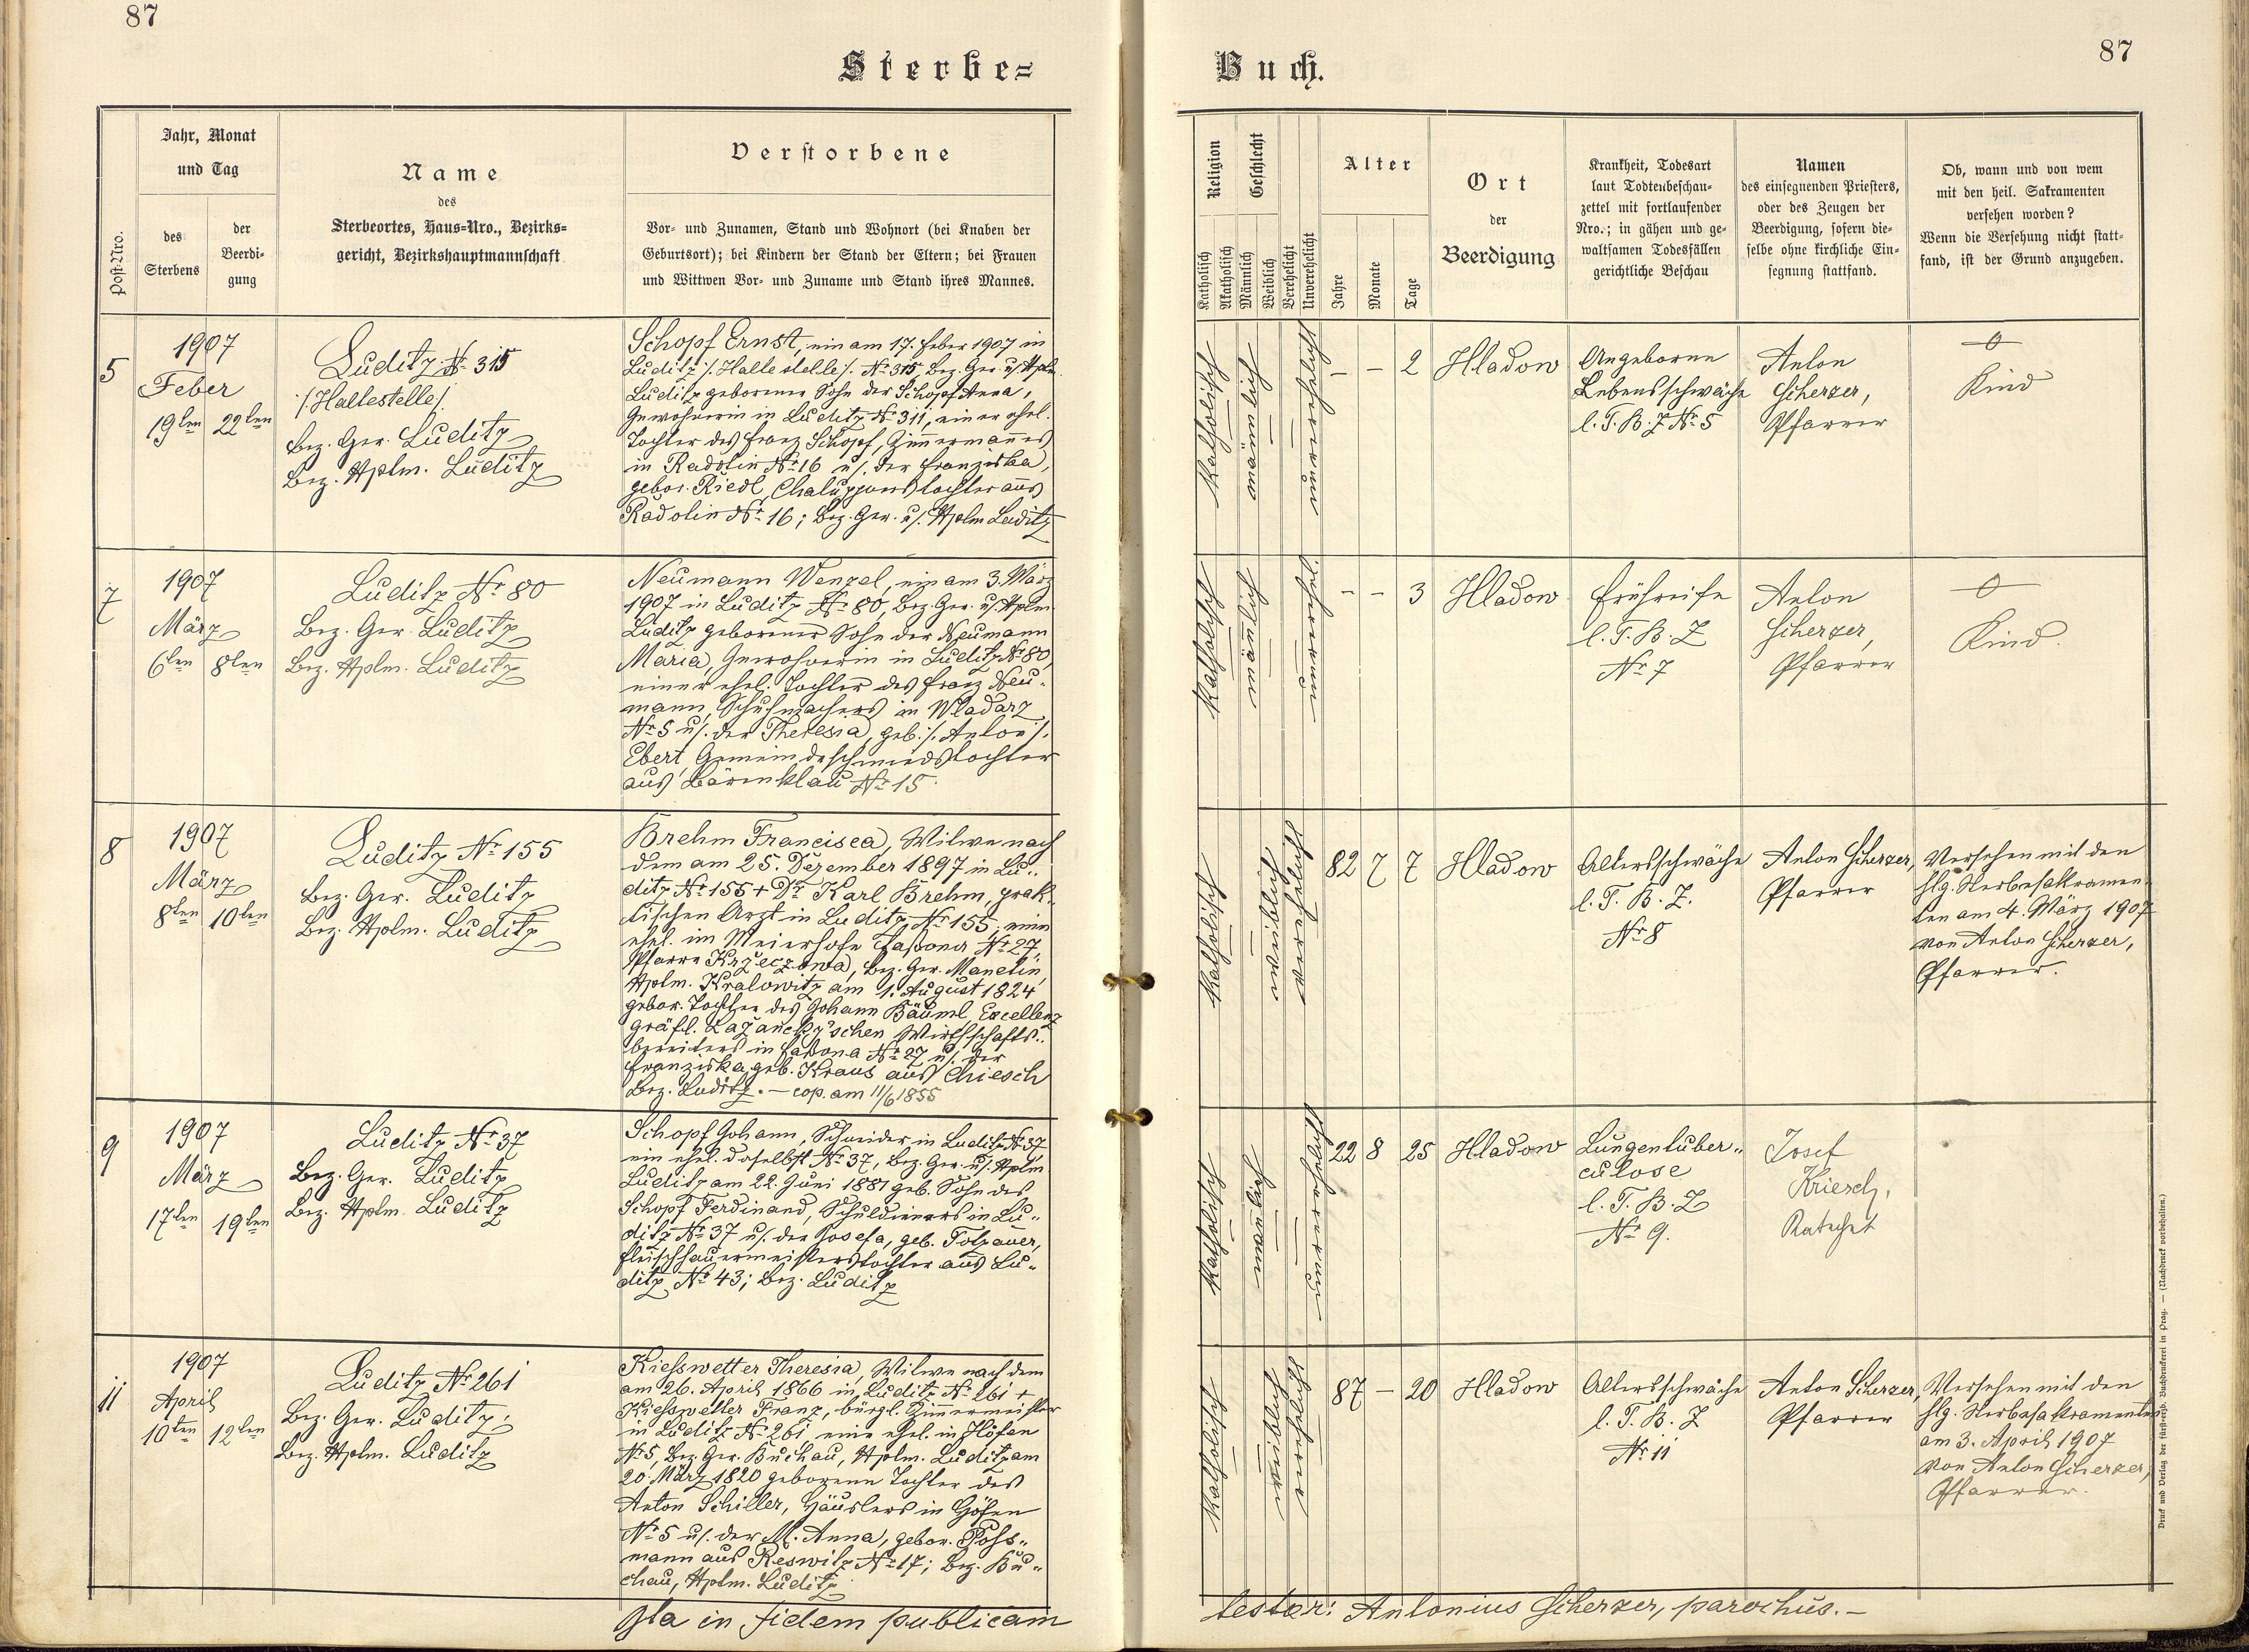 87
87
Sterbe=
Buch.
Post-Nro.
Jahr, Monat
und Tag
des
Sterbens
der
Beerdi-
gung
Name
des
Sterbeortes, Haus-Nro., Bezirks-
gericht, Bezirkshauptmannschaft
Verstorbene
Vor- und Zunamen, Stand und Wohnort (bei Knaben der
Geburtsort); bei Kindern der Stand der Eltern; bei Frauen
und Wittwen Vor- und Zuname und Stand ihres Mannes.
Religion
Katholisch
Akatholisch
Geschlecht
Männlich
Weiblich
Verehelicht
Unverehelicht
Alter
Jahre
Monate
Tage
Ort
der
Beerdigung
Krankheit, Todesart
laut Todtenbeschau-
zettel mit fortlaufender
Nro.; in gähen und ge-
waltsamen Todesfällen
gerichtliche Beschau
Namen
des einsegnenden Priesters,
oder des Zeugen der
Beerdigung, sofern die-
selbe ohne kirchliche Ein-
segnung stattfand.
Ob, wann und von wem
mit den heil. Sakramenten
versehen worden?
Wenn die Versehung nicht statt-
fand, ist der Grund anzugeben.
5
1907
Feber
19ten 22ten
Luditz No 315
/:Haltestelle/.
Bez. Ger. Luditz
Bez. Hptm. Luditz
Schopf Ernst, ein am 17. Feber 1907 in
Luditz /:Haltestelle/. No 315, Bez. Ger. u/. Hptm.
Luditz geborener Sohn der Schopf Anna,
Inwohnerin in Luditz No 311, einer ehel.
Tochter des Franz Schopf, Zimmermannes
in Radotin No 16 u/. der Franziska,
gebor. Riedl, Chaluppnerstochter aus
Radotin No 16; Bez. Ger. u/. Hptm Luditz
katholisch
männlich
unverehelicht
- - 2
Hladow
Angeborne
Lebensschwäche
l. T. B. Z No 5
Anton
Scherzer,
Pfarrer
Kind
7
1907
März
6ten 8ten
Luditz No 80
Bez. Ger. Luditz
Bez. Hptm. Luditz
Neumann Wenzel, ein am 3. März
1907 in Luditz No 80, Bez. Ger. u/. Hptm.
Luditz geborener Sohn der Neumann
Maria, Inwohnerin in Luditz No 80,
einer ehel. Tochter des Franz Neu-
mann, Schuhmachers in Wladarz
No 5 u/. der Theresia, geb. /:Anton/.
Ebert, Gemeindeschmiedstochter
aus Bärenklau No 15.
katholisch
männlich
unverehel.
- - 3
Hladow
Frühreife
l. T. B. Z
No 7
Anton
Scherzer,
Pfarrer
Kind.
8
1907
März
8ten 10ten
Luditz No 155
Bez. Ger. Luditz
Bez. Hptm. Luditz
Brehm Francisca, Witwe nach
dem am 25. Dezember 1897 in Lu-
ditz No 155 + Dr. Karl Brehm, prak-
tischen Arzt in Luditz No 155, eine
ehel. im Meierhofe No 27,
Pfarre Bez. Ger. Manetin,
Hptm. Kralowitz am 1. August 1824
gebor. Tochter des Johann Bäuml, Excellenz
gräfl. Lažancky'schen Wirthschafts-
bereiters in No 27 u/. der
Franziska geb. Kraus aus Chiesch
Bez. Luditz. — cop. am 11/6 1855
katholisch
weiblich
verehelicht
82 7 7
Hladow
Altersschwäche
l. T. B. Z.
No 8
Anton Scherzer,
Pfarrer
Versehen mit den
hlg. Sterbesakramen-
ten am 4. März 1907
von Anton Scherzer,
Pfarrer.
9
1907
März
17ten 19ten
Luditz No 37
Bez. Ger. Luditz
Bez. Hptm. Luditz
Schopf Johann, Schneider in Luditz No 37,
ein ehel. daselbst No 37, Bez. Ger. u/. Hptm
Luditz am 22. Juni 1881 geb. Sohn des
Schopf Ferdinand, Schuldieners in Lu-
ditz No 37 u/. der Josefa, geb. Tolzauer,
Fleischhauermeisterstochter aus Lu-
ditz No 43; Bez. Luditz
katholisch
männlich
unverehelicht
22 8 25
Hladow
Lungentuber-
culose
l. T. B. Z
No 9.
Josef
Kriesch,
Katechet
11
1907
April
10ten 12ten
Luditz No 261
Bez. Ger. Luditz
Bez. Hptm. Luditz
Kiesswetter Theresia, Witwe nach dem
am 26. April 1866 in Luditz No 261 +
Kiesswetter Franz, bürgl. Zimmermeister
in Luditz No 261 eine ehel. in Höfen
No 5, Bez. Ger. Buchau, Hptm. Luditz am
20. März 1820 geborene Tochter des
Anton Schiller, Häuslers in Höfen
No 5 u/. der M. Anna, gebor. Poss-
mann aus Reswitz No 17; Bez. Bu-
chau, Hptm. Luditz
katholisch
weiblich
verehelicht
87 - 20
Hladow
Altersschwäche
l. T. B. Z
No 11
Anton Scherzer,
Pfarrer
Versehen mit den
hlg. Sterbesakramenten
am 3. April 1907
von Anton Scherzer,
Pfarrer.
Ita in fidem publicam
testor: Antonius Scherzer, parochus.—
Druck und Verlag der fürsterzb. Buchdruckerei in Prag. — (Nachdruck vorbehalten.)